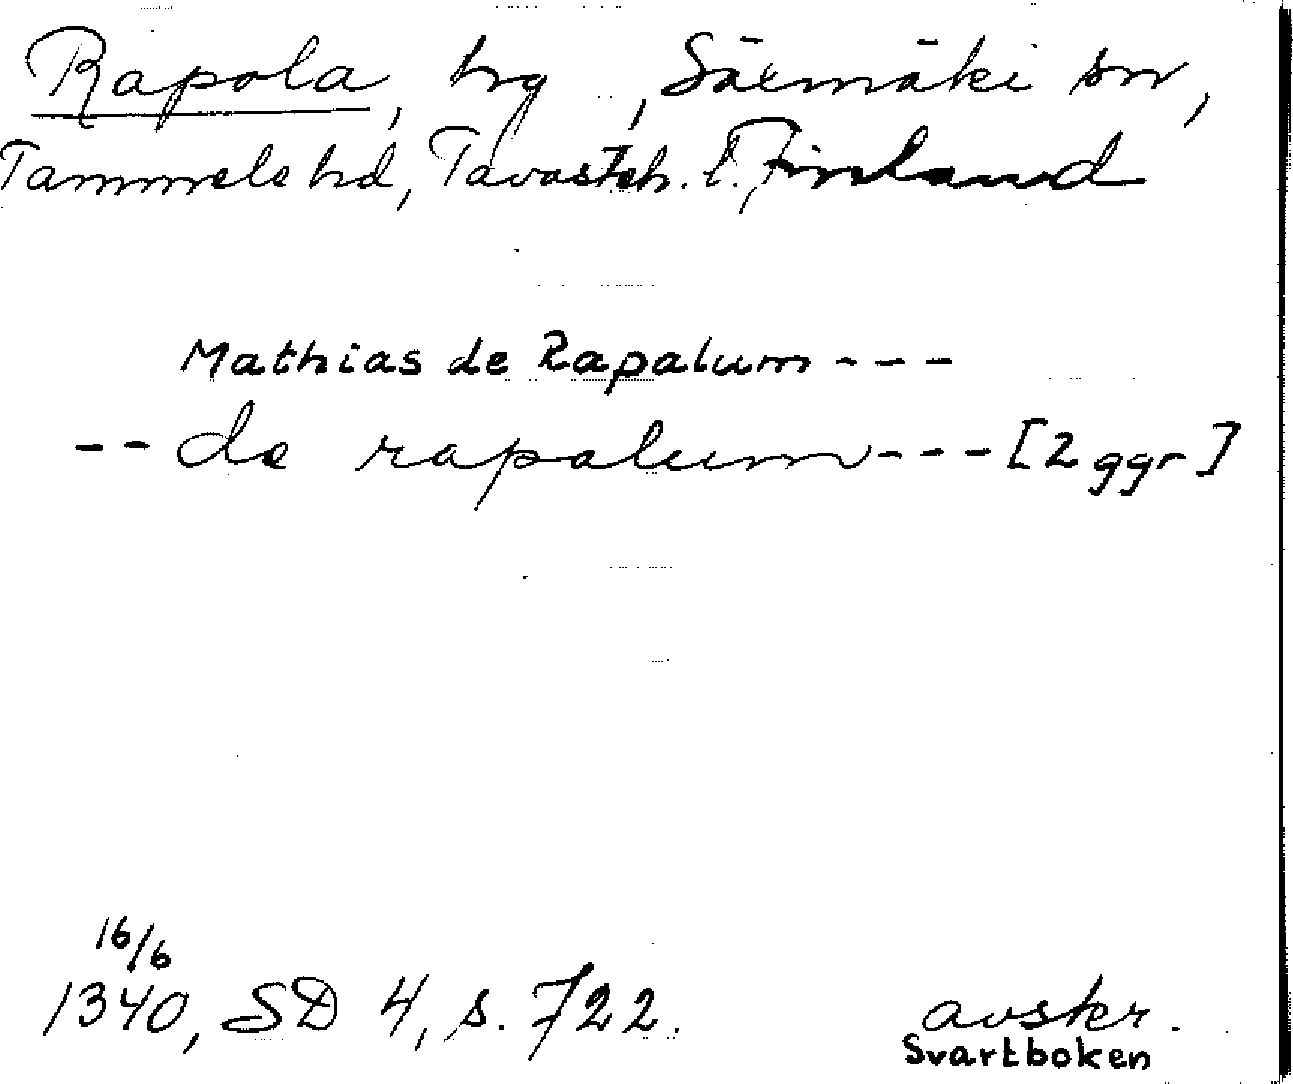 Rapola, by, Säxmäki sn,
Tammela hd, Tavasteh. l. Finland
Mathias de Rapalum - - -
- - de rapalum - - - [2 ggr]
16/6
1340, SD 4, s. 722.
avskr.
Svartboken